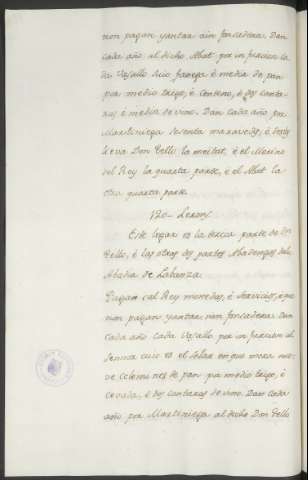 non pagan yantar nin fonsadera. Dan
cada año al dicho Abat por infurcion ca
da Vasallo suio fanega è media de pan
por medio trigo, è centeno, è dos canta
ras è media de vino. Dan cada año por
Martiniega sesenta maravedis, è
lieva Don Tello la meitat, è el Merino
del Rey la quarta parte, è el Abat la
otra quarta parte.
Este logar es la tercia parte de Don
Tello, è las otras dos partes Abadengo dela
Abadia de Labanza.
Pagan al Rey monedas, è servicios, è que
non pagan yantar, nin fonsadera. Dan
cada año cada Vasallo por infurcion al
Sennor cuio es el solar en que mora nue
ve celemines de pan por medio trigo, è
cevada, è dos cantaras de vino. Dan cada
año por Martiniega al dicho Don Tello